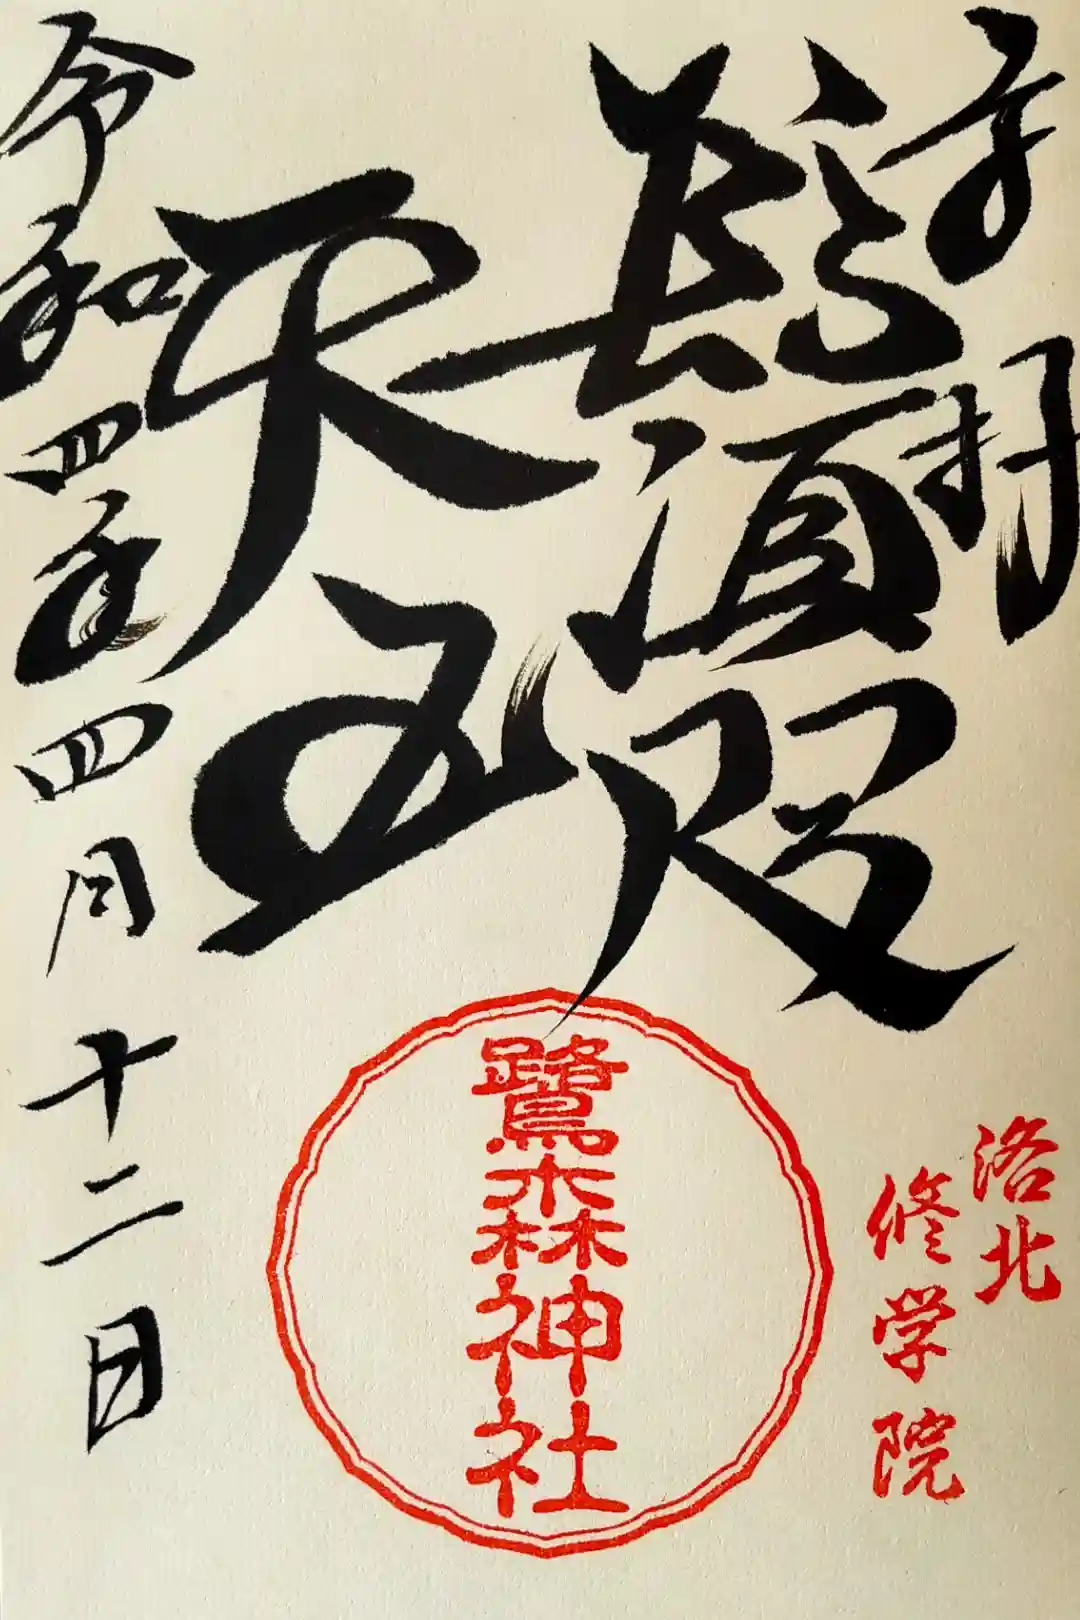 奉拝
鬚咫
天王
令和四年四月十二日
鷺森神社
洛北
修学院